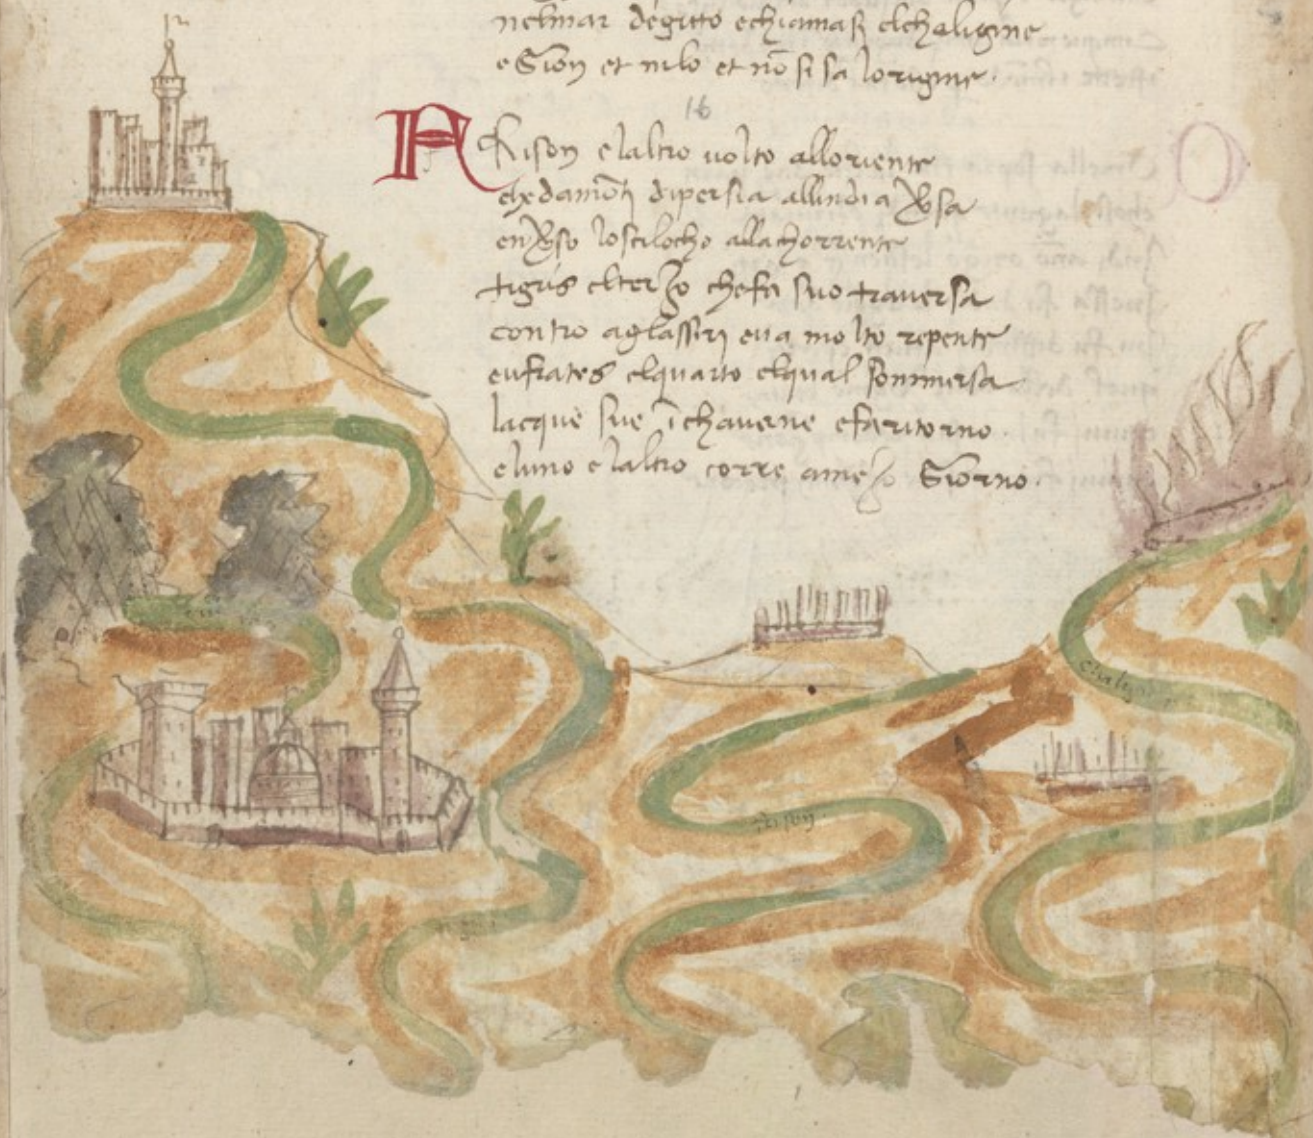 nel mar degitto echiamasi elchaligine
e Gion et nilo et nō si sa lorigine
16
F Rison elaltro uolto alloriente
che damōti dipersia allindia ꝟsa
enꝟso loscilocho allachorrente
tigris elterzo chefa suo trauersa
contro aglassiri eua molto repente
eufrates elquarto elqual sommersa
lacque sue ī chauerne efaritorno
eluno elaltro corre amezo Giorno